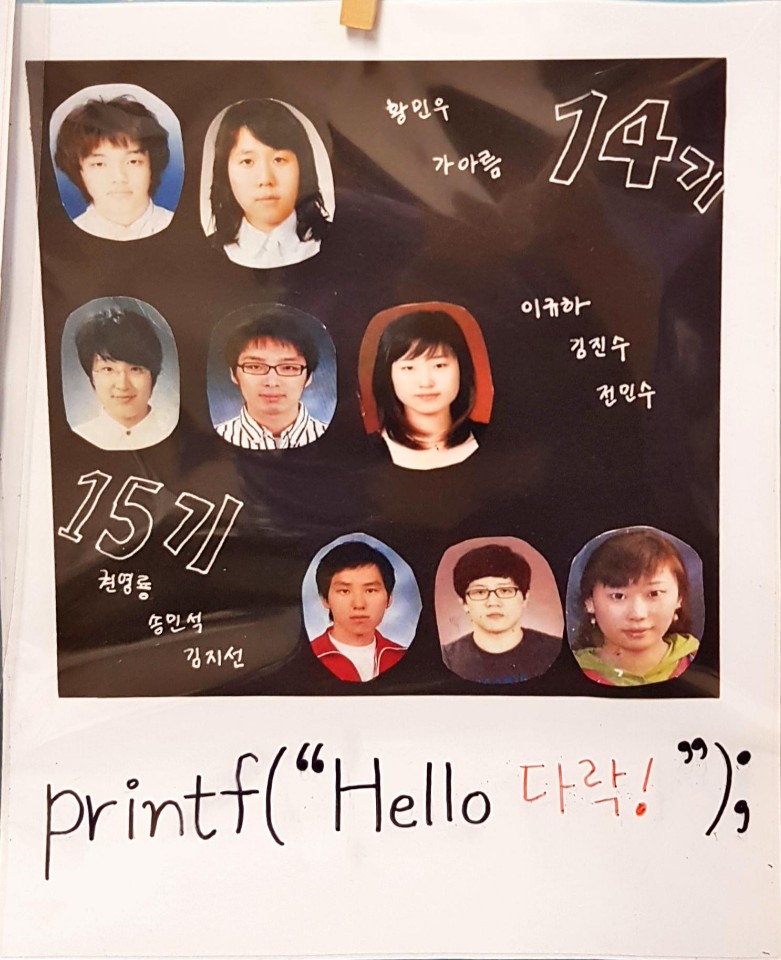 황민우
가아름
14기
이규하
김진수
전민수
15기
권영룡
송민석
김지선
printf("Hello 다락!");